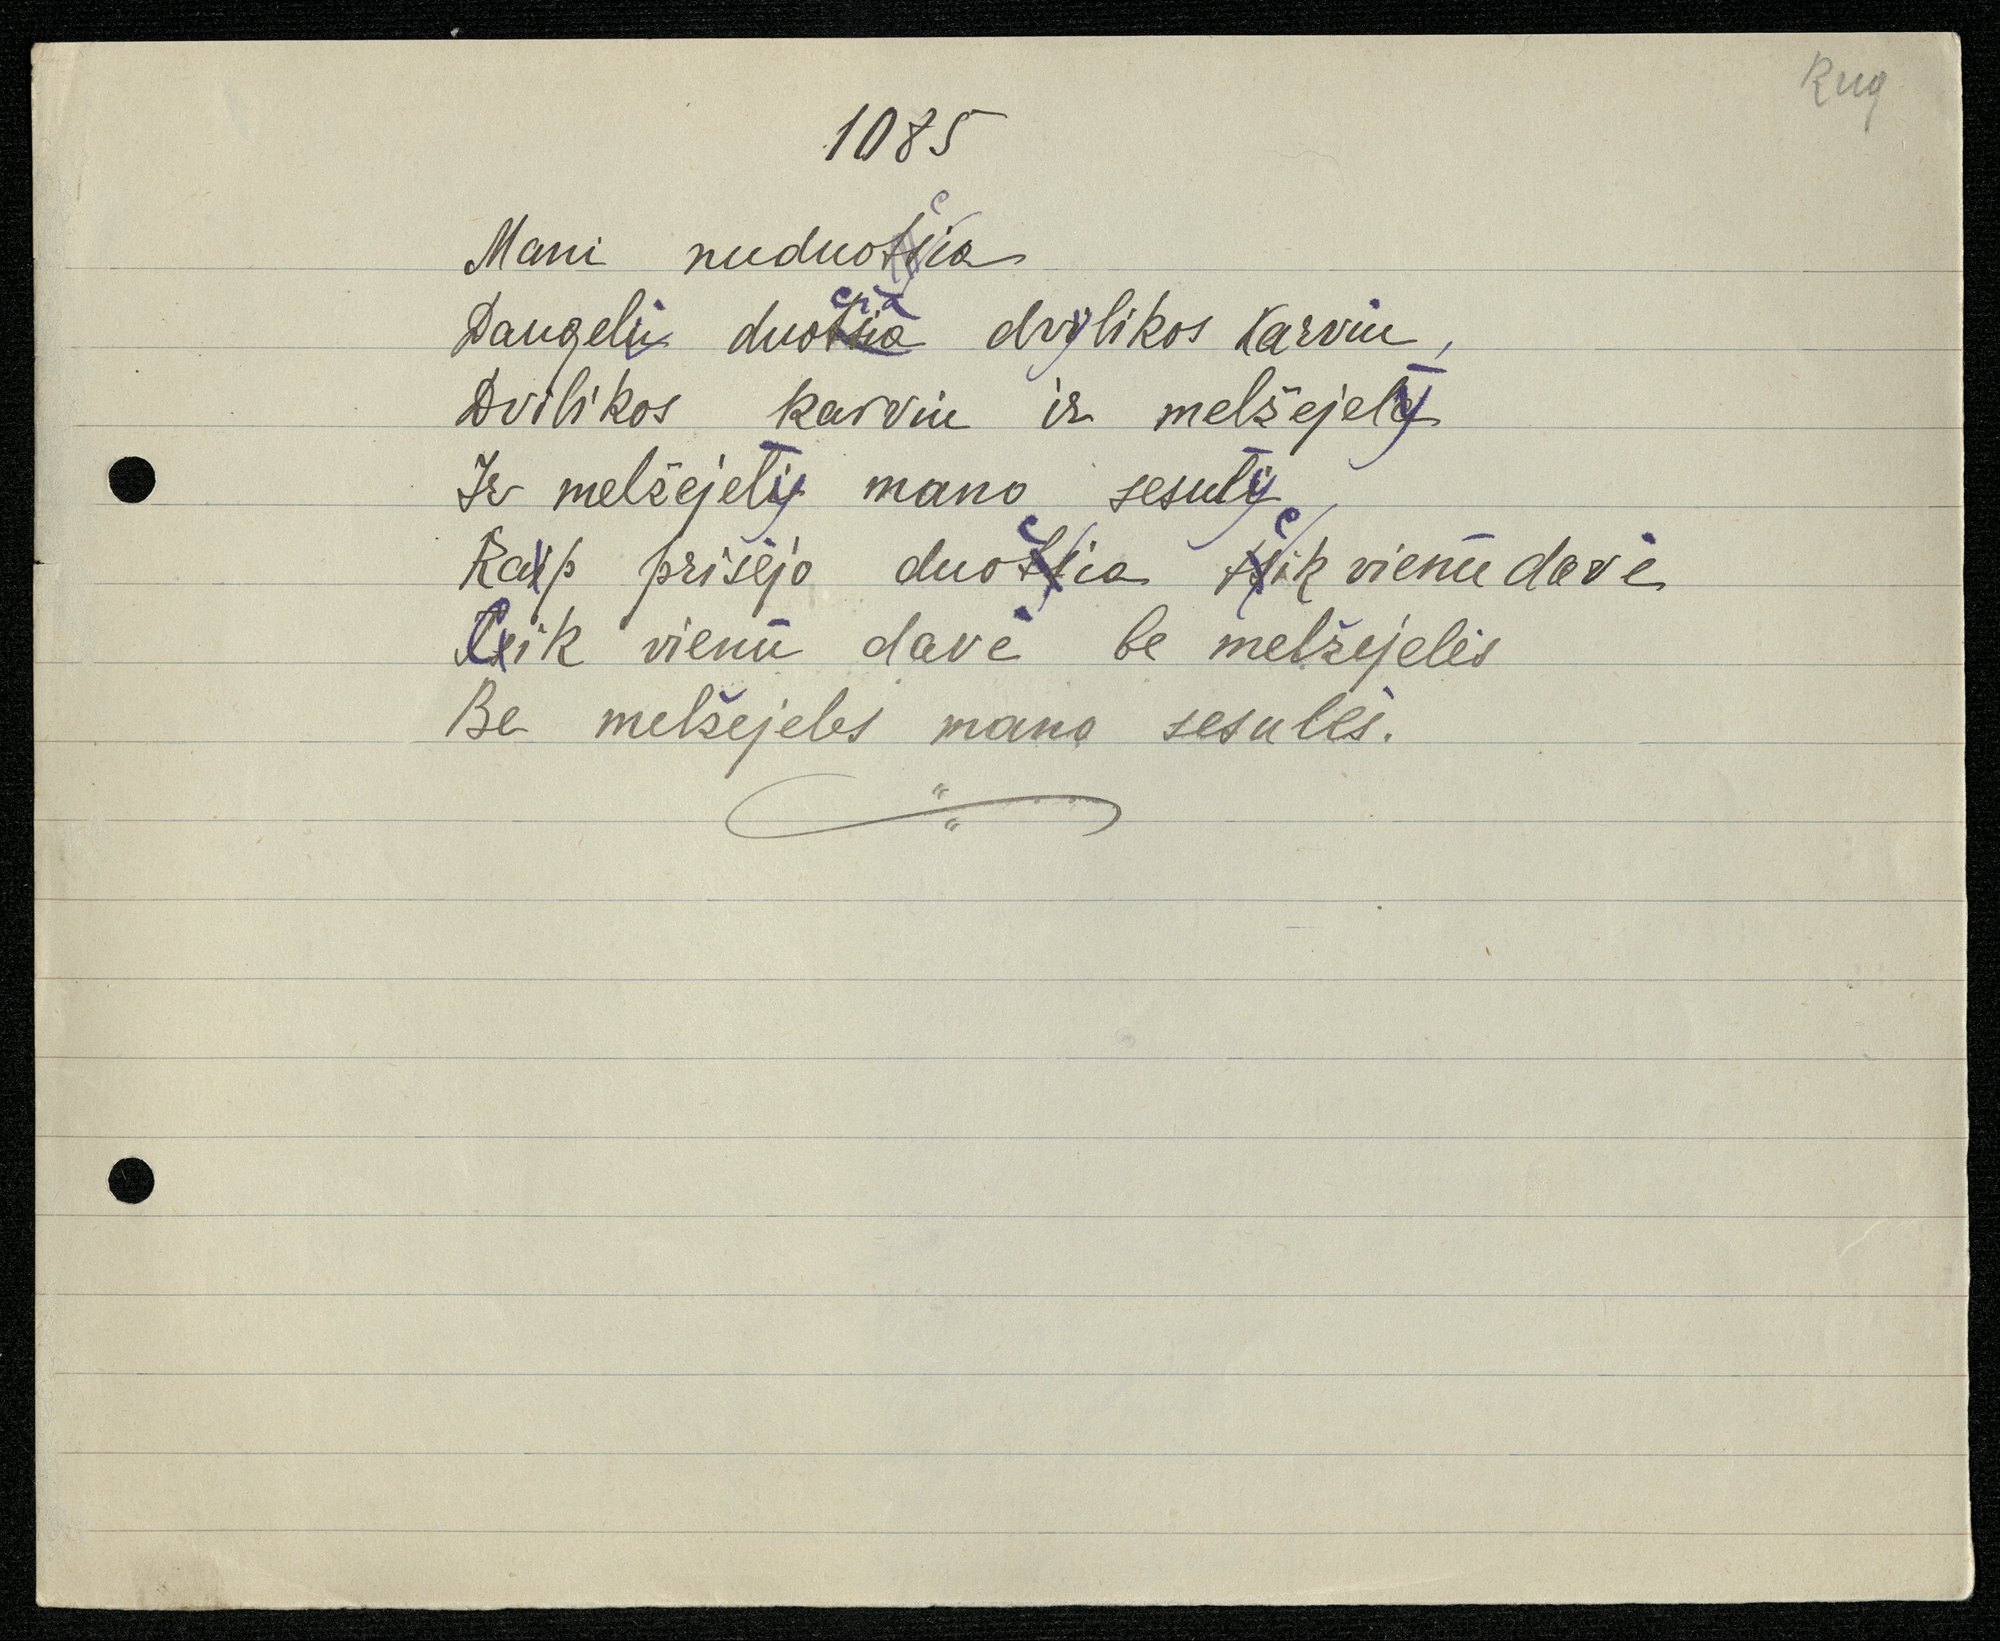 Rug
1085
Mani nuduočia
Daugelu duočia dvylikos karviu,
Dvilikos karviu ir melžejelȳ
Ir melžejelȳ mano sesulȳ
Kaip prišejo duočia čik vienū davė
Čik vienū davė be melžejelės
Be melžejeles mano sesulės.